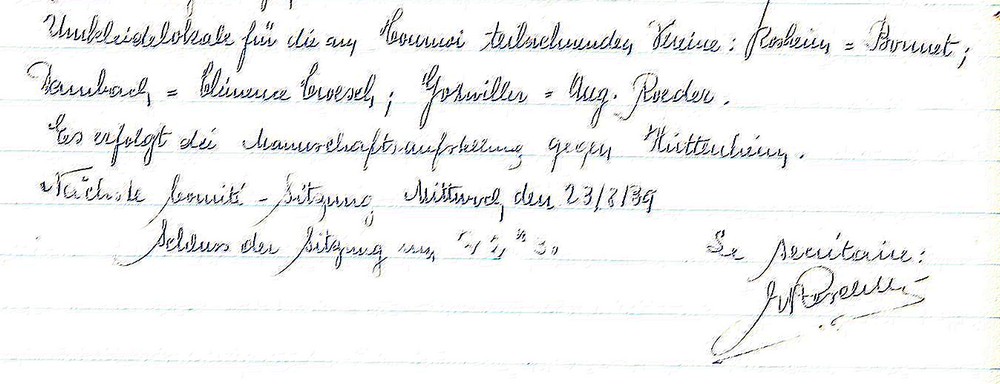 Umkleidelokale für die am Tournoi teilnehmenden Vereine: Rosheim = Bonnet;
Dambach = Clémence Groesch; Goxwiller = Aug. Roeder.
Es erfolgt die Mannschaftsaufstellung gegen Hüttenheim.
Nächste Comité-Sitzung Mittwoch, den 23/8/39
Schluss der Sitzung um 22 h 30
Le secrétaire: